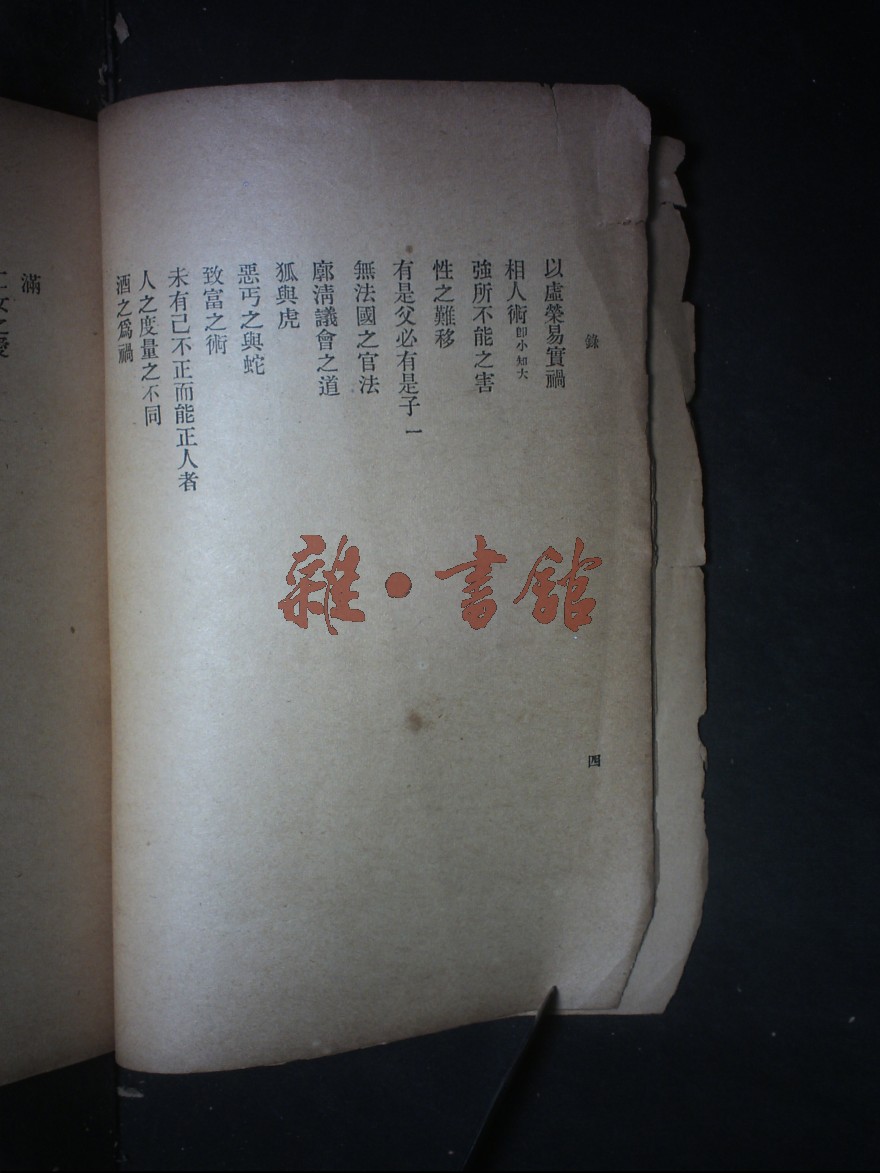 錄
以虛榮易實禍
相人術即小知大
強所不能之害
性之難移
有是父必有是子 一
無法國之官法
廓淸議會之道
狐與虎
惡丐之與蛇
致富之術
未有己不正而能正人者
人之度量之不同
酒之爲禍
四
滿
雜・書館